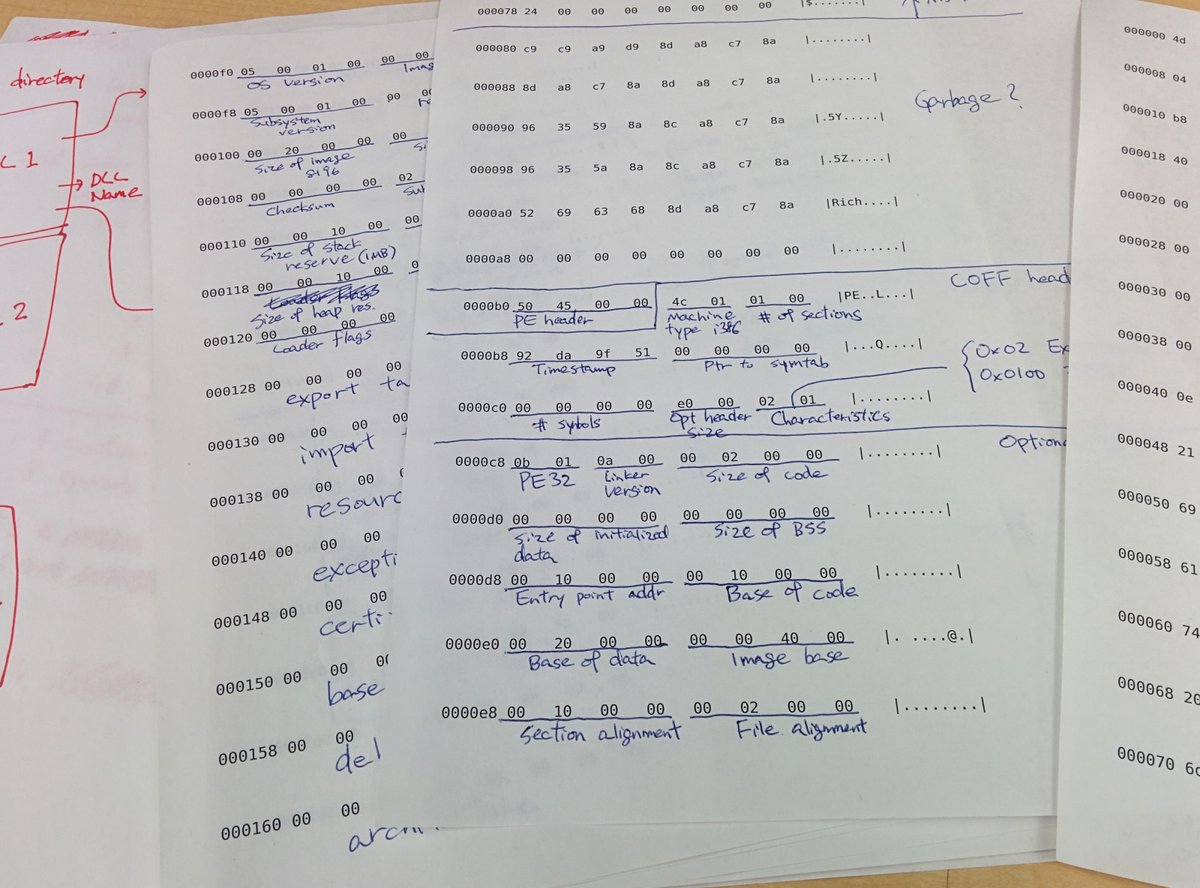 directory
1
DLL
Name
2
0000f0 05 00 01 00 00 00
OS version
0000f8 05 00 01 00 00
Subsystem
version
000100 00 20 00 00 00
Size of image
000108 00 00 00 00 02
Checksum
000110 00 00 10 00 00
Size of stack
reserve (1MB)
000118 00 00 10 00
Size of heap res.
000120 00 00 00 00
Loader flags
000128 00 00 00 00
export ta
000130 00 00 00 00
import
000138 00 00 00
resourc
000140 00 00 00
excepti
000148 00 00 00
certi
000150 00 00
base
000158 00 00
del
000160 00 00
000078 24 00 00 00 00 00 00 00 |$.......|
000080 c9 c9 a9 d9 8d a8 c7 8a |........|
000088 8d a8 c7 8a 8d a8 c7 8a |........|
Garbage?
000090 96 35 59 8a 8c a8 c7 8a |.5Y.....|
000098 96 35 5a 8a 8c a8 c7 8a |.5Z.....|
0000a0 52 69 63 68 8d a8 c7 8a |Rich....|
0000a8 00 00 00 00 00 00 00 00 |........|
COFF head
0000b0 50 45 00 00 4c 01 01 00 |PE..L...|
PE header Machine type i386 # of sections
0000b8 92 da 9f 51 00 00 00 00 |...Q....|
Timestamp Ptr to symtab
0x02 Ex
0x0100
0000c0 00 00 00 00 e0 00 02 01 |........|
# symbols Opt header size Characteristics
Option
0000c8 0b 01 0a 00 00 02 00 00 |........|
PE32 Linker version Size of code
0000d0 00 00 00 00 00 00 00 00 |........|
Size of initialized data Size of BSS
0000d8 00 10 00 00 00 10 00 00 |........|
Entry point addr Base of code
0000e0 00 20 00 00 00 00 40 00 |. ....@.|
Base of data Image base
0000e8 00 10 00 00 00 02 00 00 |........|
Section alignment File alignment
000000 4d
000008 04
000010 b8
000018 40
000020 00
000028 00
000030 00
000038 00
000040 0e
000048 21
000050 69
000058 61
000060 74
000068 20
000070 6d